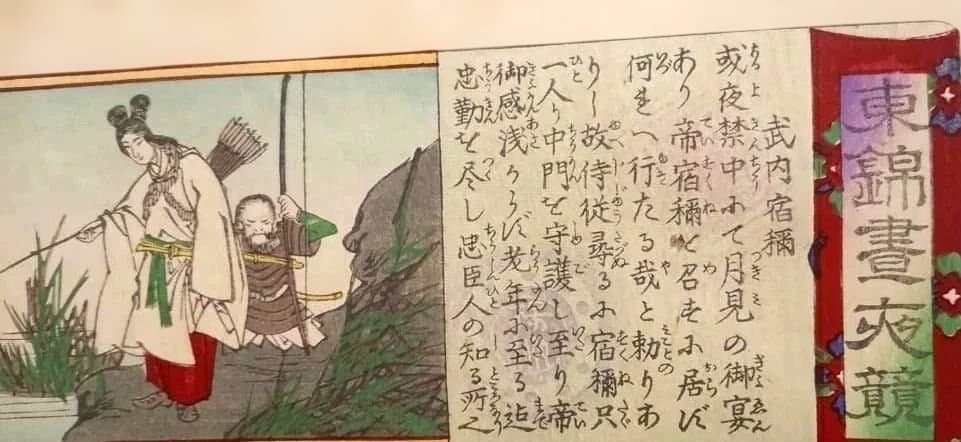 東錦晝夜競
武内宿禰
或夜禁中にて月見の御宴
あり帝宿禰を召すに居らず
何れへ行たる哉と勅りあ
りし故侍従尋るに宿禰只
一人り中門を守護し至り帝
御感浅からず老年に至る迄
忠勤を尽し忠臣人の知る所之